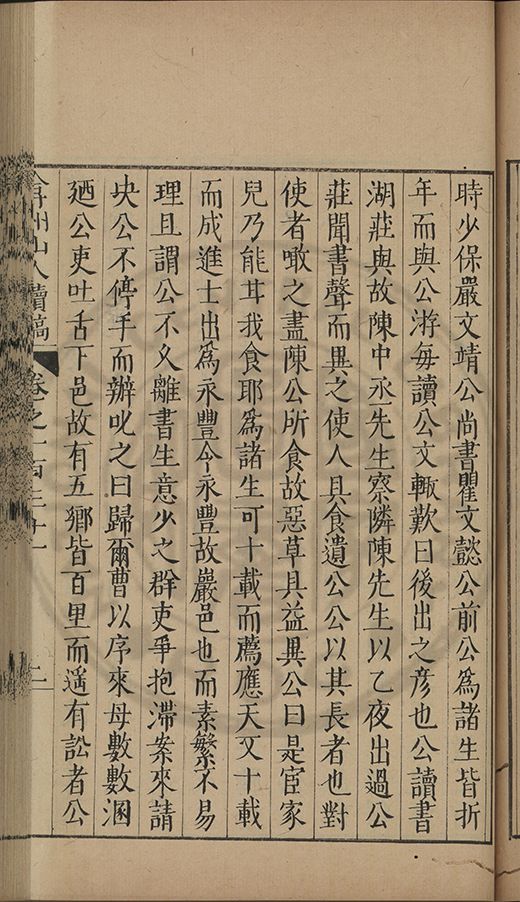 時少保嚴文靖公尚書瞿文懿公前公爲諸生皆折
年而與公游每讀公文輙歎曰後出之彦也公讀書
湖莊與故陳中丞先生察隣陳先生以乙夜出過公
莊聞書聲而異之使人具食遺公公以其長者也對
使者噉之盡陳公所食故惡草具益異公曰是宦家
兒乃能甘我食耶爲諸生可十載而薦應天又十載
而成進士出爲永豐令永豐故巖邑也而素繁不易
理且謂公不乆離書生意少之群吏爭抱滯案來請
决公不停手而辦叱之曰歸爾曹以序來毋數數溷
廼公吏吐舌下邑故有五鄉皆百里而遥有訟者公
弇州山人續稿 卷之一百三十一 二